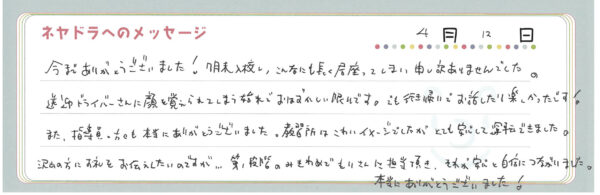 ネヤドラへのメッセージ
4月12日
今までありがとうございました！7月末入校し、こんなにも長く居座ってしまい申し訳ありませんでした。
送迎ドライバーさんに顔を覚えられてしまう始末でおはずかしい限りです。でも行き帰りでお話したり楽しかったです！
また、指導員の方も本当にありがとうございました。教習所はこわいイメージでしたがとても安心して運転できました。
沢山の方にお礼をお伝えしたいのですが…第1段階のみきわめでもりさんに担当頂き、それが安心と自信につながりました。
本当にありがとうございました！